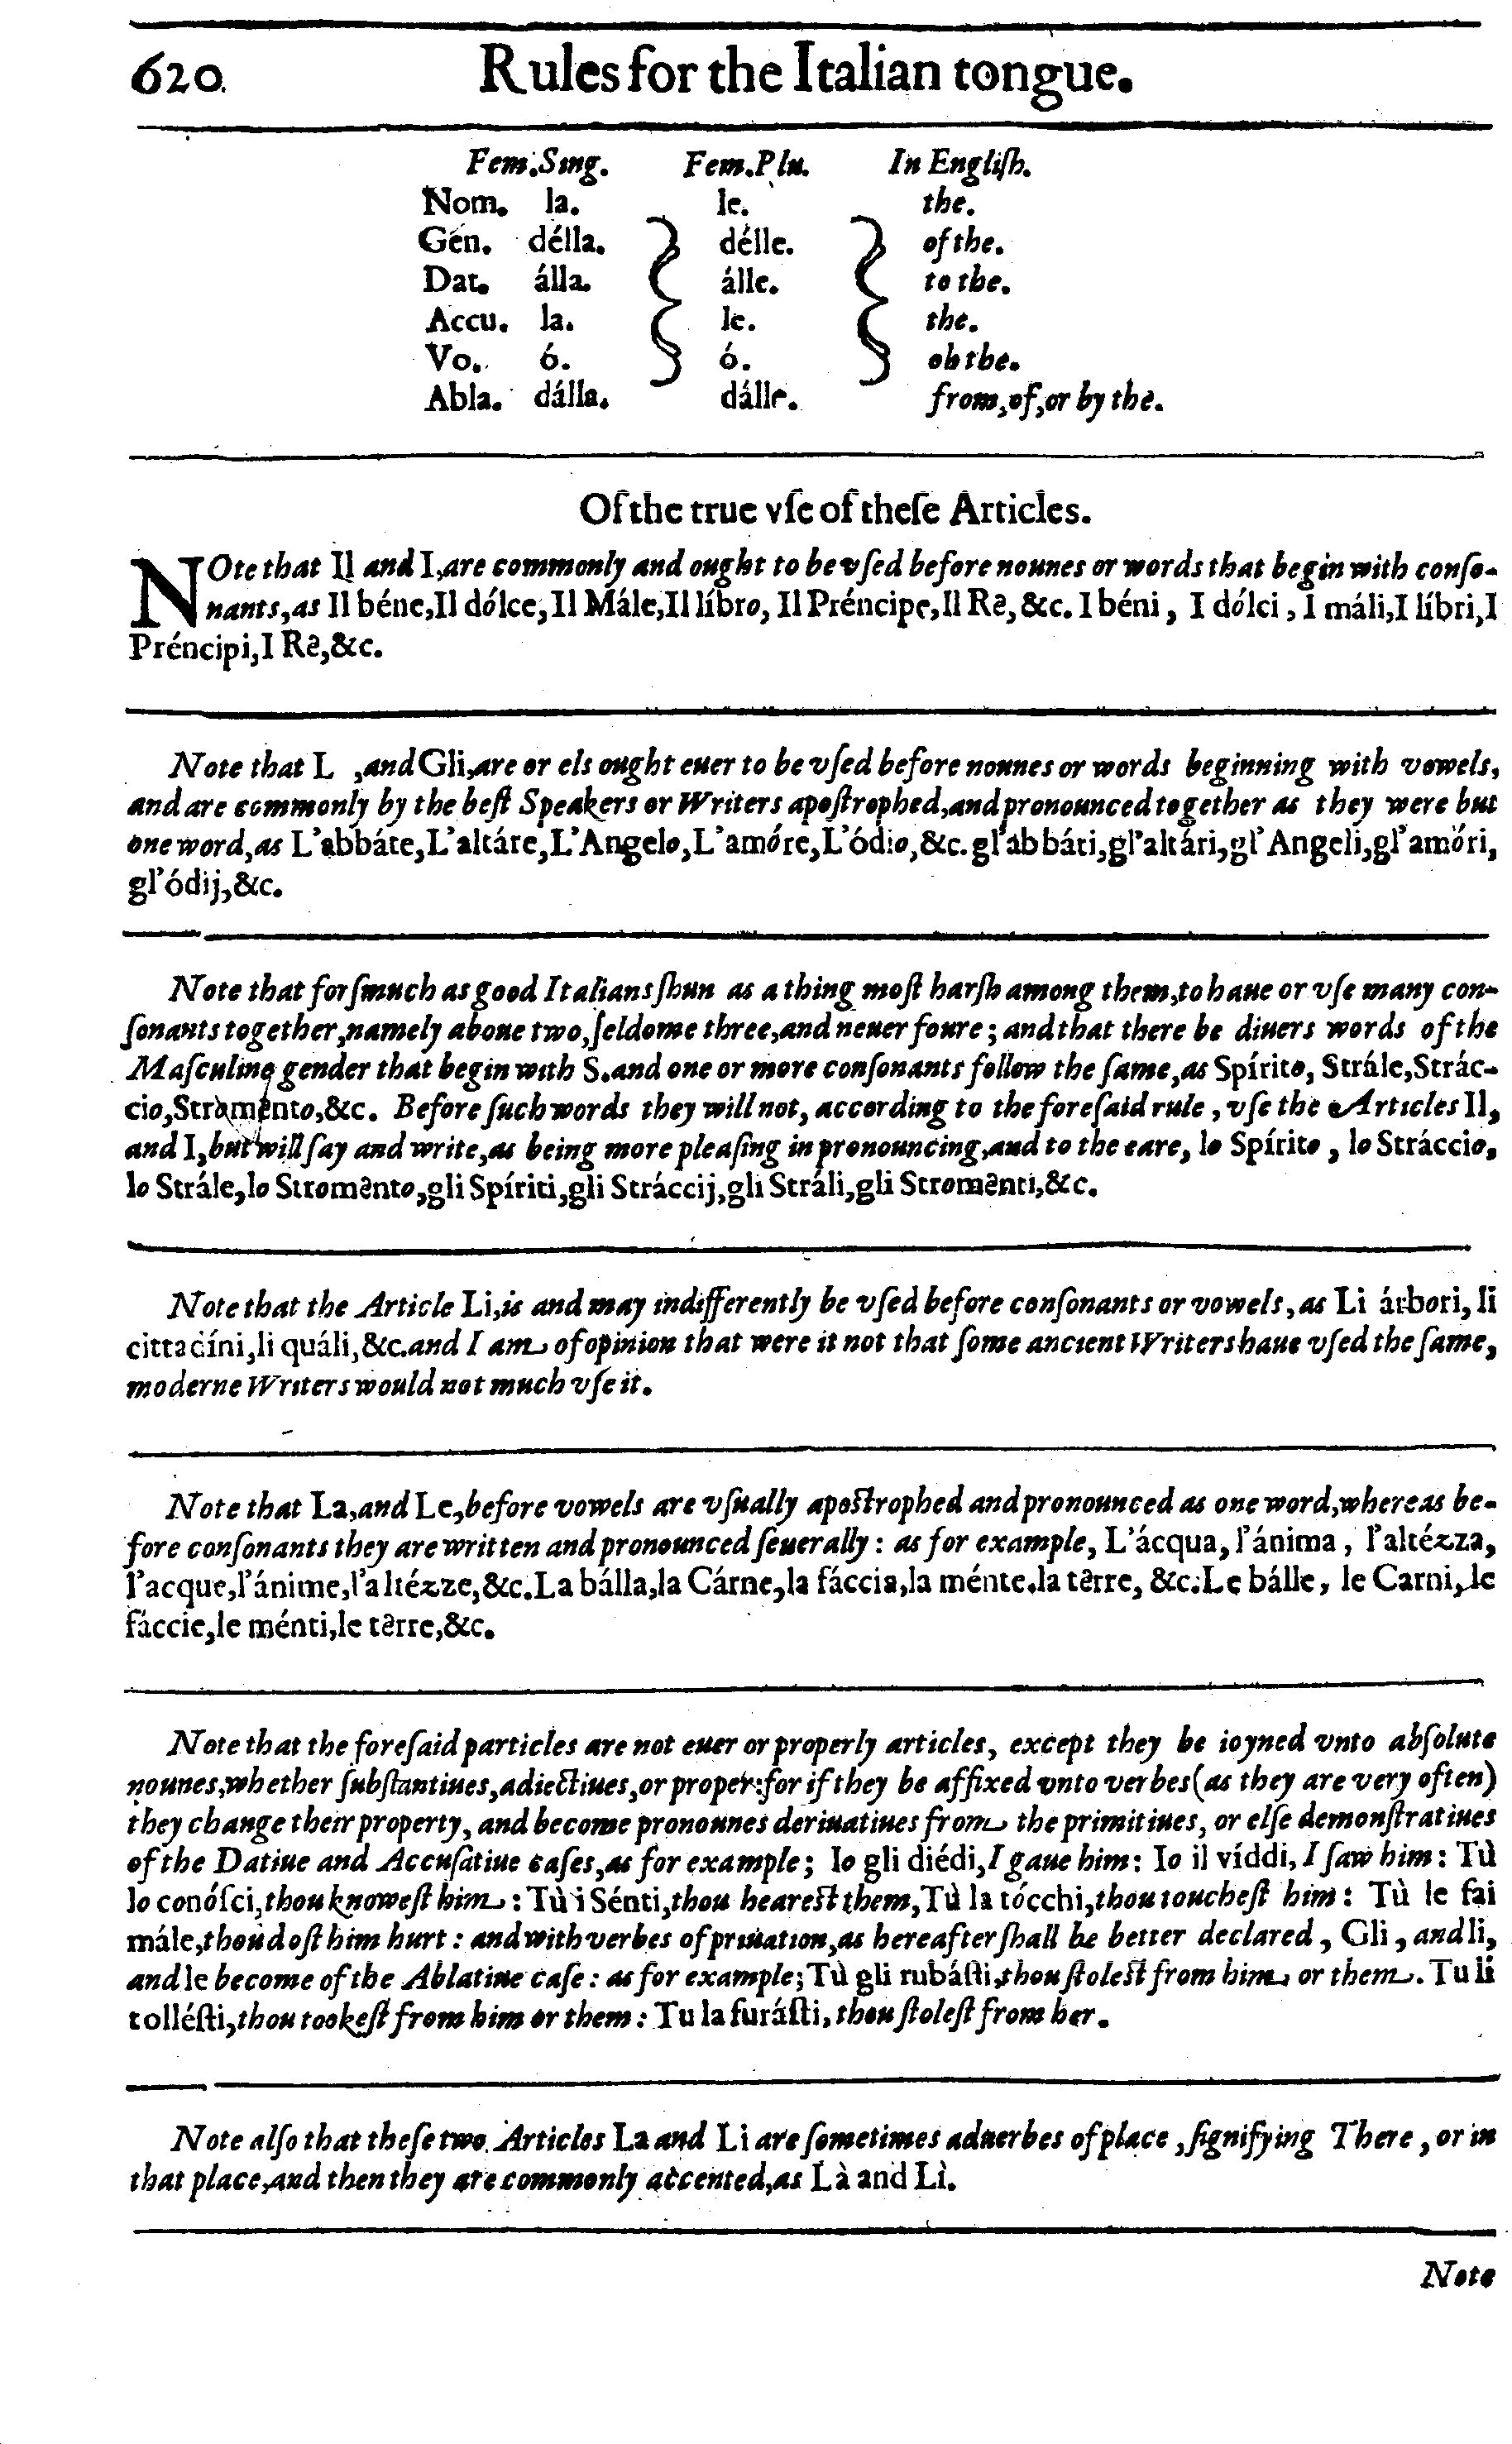 620. Rules for the Italian tongue.
Fem.Sing. Fem.Plu. In Engliſh.
Nom. la. le. the.
Gén. délla. délle. of the.
Dat. álla. álle. to the.
Accu. la. le. the.
Vo. ó. ó. oh the.
Abla. dálla. dálle. from,of,or by the.
Of the true vſe of theſe Articles.
NOte that Il and I,are commonly and ought to be vſed before nounes or words that begin with conſo-
nants,as Il béne,Il dólce,Il Mále,Il líbro, Il Préncipe,Il Rè,&c. I béni, I dólci, I máli,I líbri,I
Préncipi,I Rè,&c.
Note that L ,and Gli,are or els ought euer to be vſed before nounes or words beginning with vowels,
and are commonly by the beſt Speakers or Writers apoſtrophed,and pronounced together as they were but
one word,as L'abbáte,L'altáre,L'Angelo,L'amóre,L'ódio,&c.gl'abbáti,gl'altári,gl'Angeli,gl'amóri,
gl'ódij,&c.
Note that forſmuch as good Italians ſhun as a thing moſt harſh among them,to haue or vſe many con-
ſonants together,namely aboue two,ſeldome three,and neuer foure; and that there be diuers words of the
Maſculine gender that begin with S.and one or more conſonants follow the ſame,as Spírito, Strále,Strác-
cio,Stramento,&c. Before ſuch words they will not, according to the foreſaid rule, vſe the Articles Il,
and I,but will ſay and write,as being more pleaſing in pronouncing,and to the eare, lo Spírito, lo Stráccio,
lo Strále,lo Stromènto,gli Spíriti,gli Stráccij,gli Stráli,gli Stromènti,&c.
Note that the Article Li,is and may indifferently be vſed before conſonants or vowels, as Li árbori, li
cittadíni,li quáli,&c.and I am of opinion that were it not that ſome ancient Writers haue vſed the ſame,
moderne Writers would not much vſe it.
Note that La,and Le,before vowels are vſually apoſtrophed and pronounced as one word,whereas be-
fore conſonants they are written and pronounced ſeuerally: as for example, L'ácqua, l'ánima, l'altézza,
l'acque,l'ánime,l'altézze,&c.La bálla,la Cárne,la fáccia,la ménte,la tèrre, &c.Le bálle, le Carni,le
fáccie,le ménti,le tèrre,&c.
Note that the foreſaid particles are not euer or properly articles, except they be ioyned vnto abſolute
nounes,whether ſubſtantiues,adiectiues,or proper:for if they be affixed vnto verbes(as they are very often)
they change their property, and become pronounes deriuatiues from the primitiues, or elſe demonſtratiues
of the Datiue and Accuſatiue caſes,as for example; Io gli diédi,I gaue him: Io il víddi, I ſaw him: Tù
lo conóſci,thou knoweſt him: Tù i Sénti,thou heareſt them,Tù la tócchi,thou toucheſt him: Tù le fai
mále,thou doſt him hurt: and with verbes of priuation,as hereafter ſhall be better declared, Gli, and li,
and le become of the Ablatiue caſe: as for example;Tù gli rubáſti,thou ſtoleſt from him or them. Tu li
tolléſti,thou tookeſt from him or them: Tu la furáſti, thou ſtoleſt from her.
Note alſo that theſe two Articles La and Li are ſometimes aduerbes of place, ſignifying There, or in
that place,and then they are commonly accented,as Là and Lì.
Note